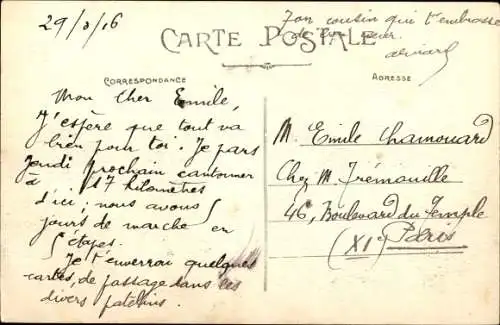 29/3/16
Ton cousin qui t'embrasse
de
CARTE POSTALE
CORRESPONDANCE
ADRESSE
Mon cher Emile,
J'espère que tout va
bien pour toi. Je pars
Jeudi prochain cantonner
à .. 117 kilomètres
d'ici; nous avons 5
jours de marche en
5 étapes.
Je t'enverrai quelques
cartes, de passage dans les
divers patelins.
M. Emile Chamouard
Chez M. Trémouille
46, Boulevard du Temple
(XIe) Paris